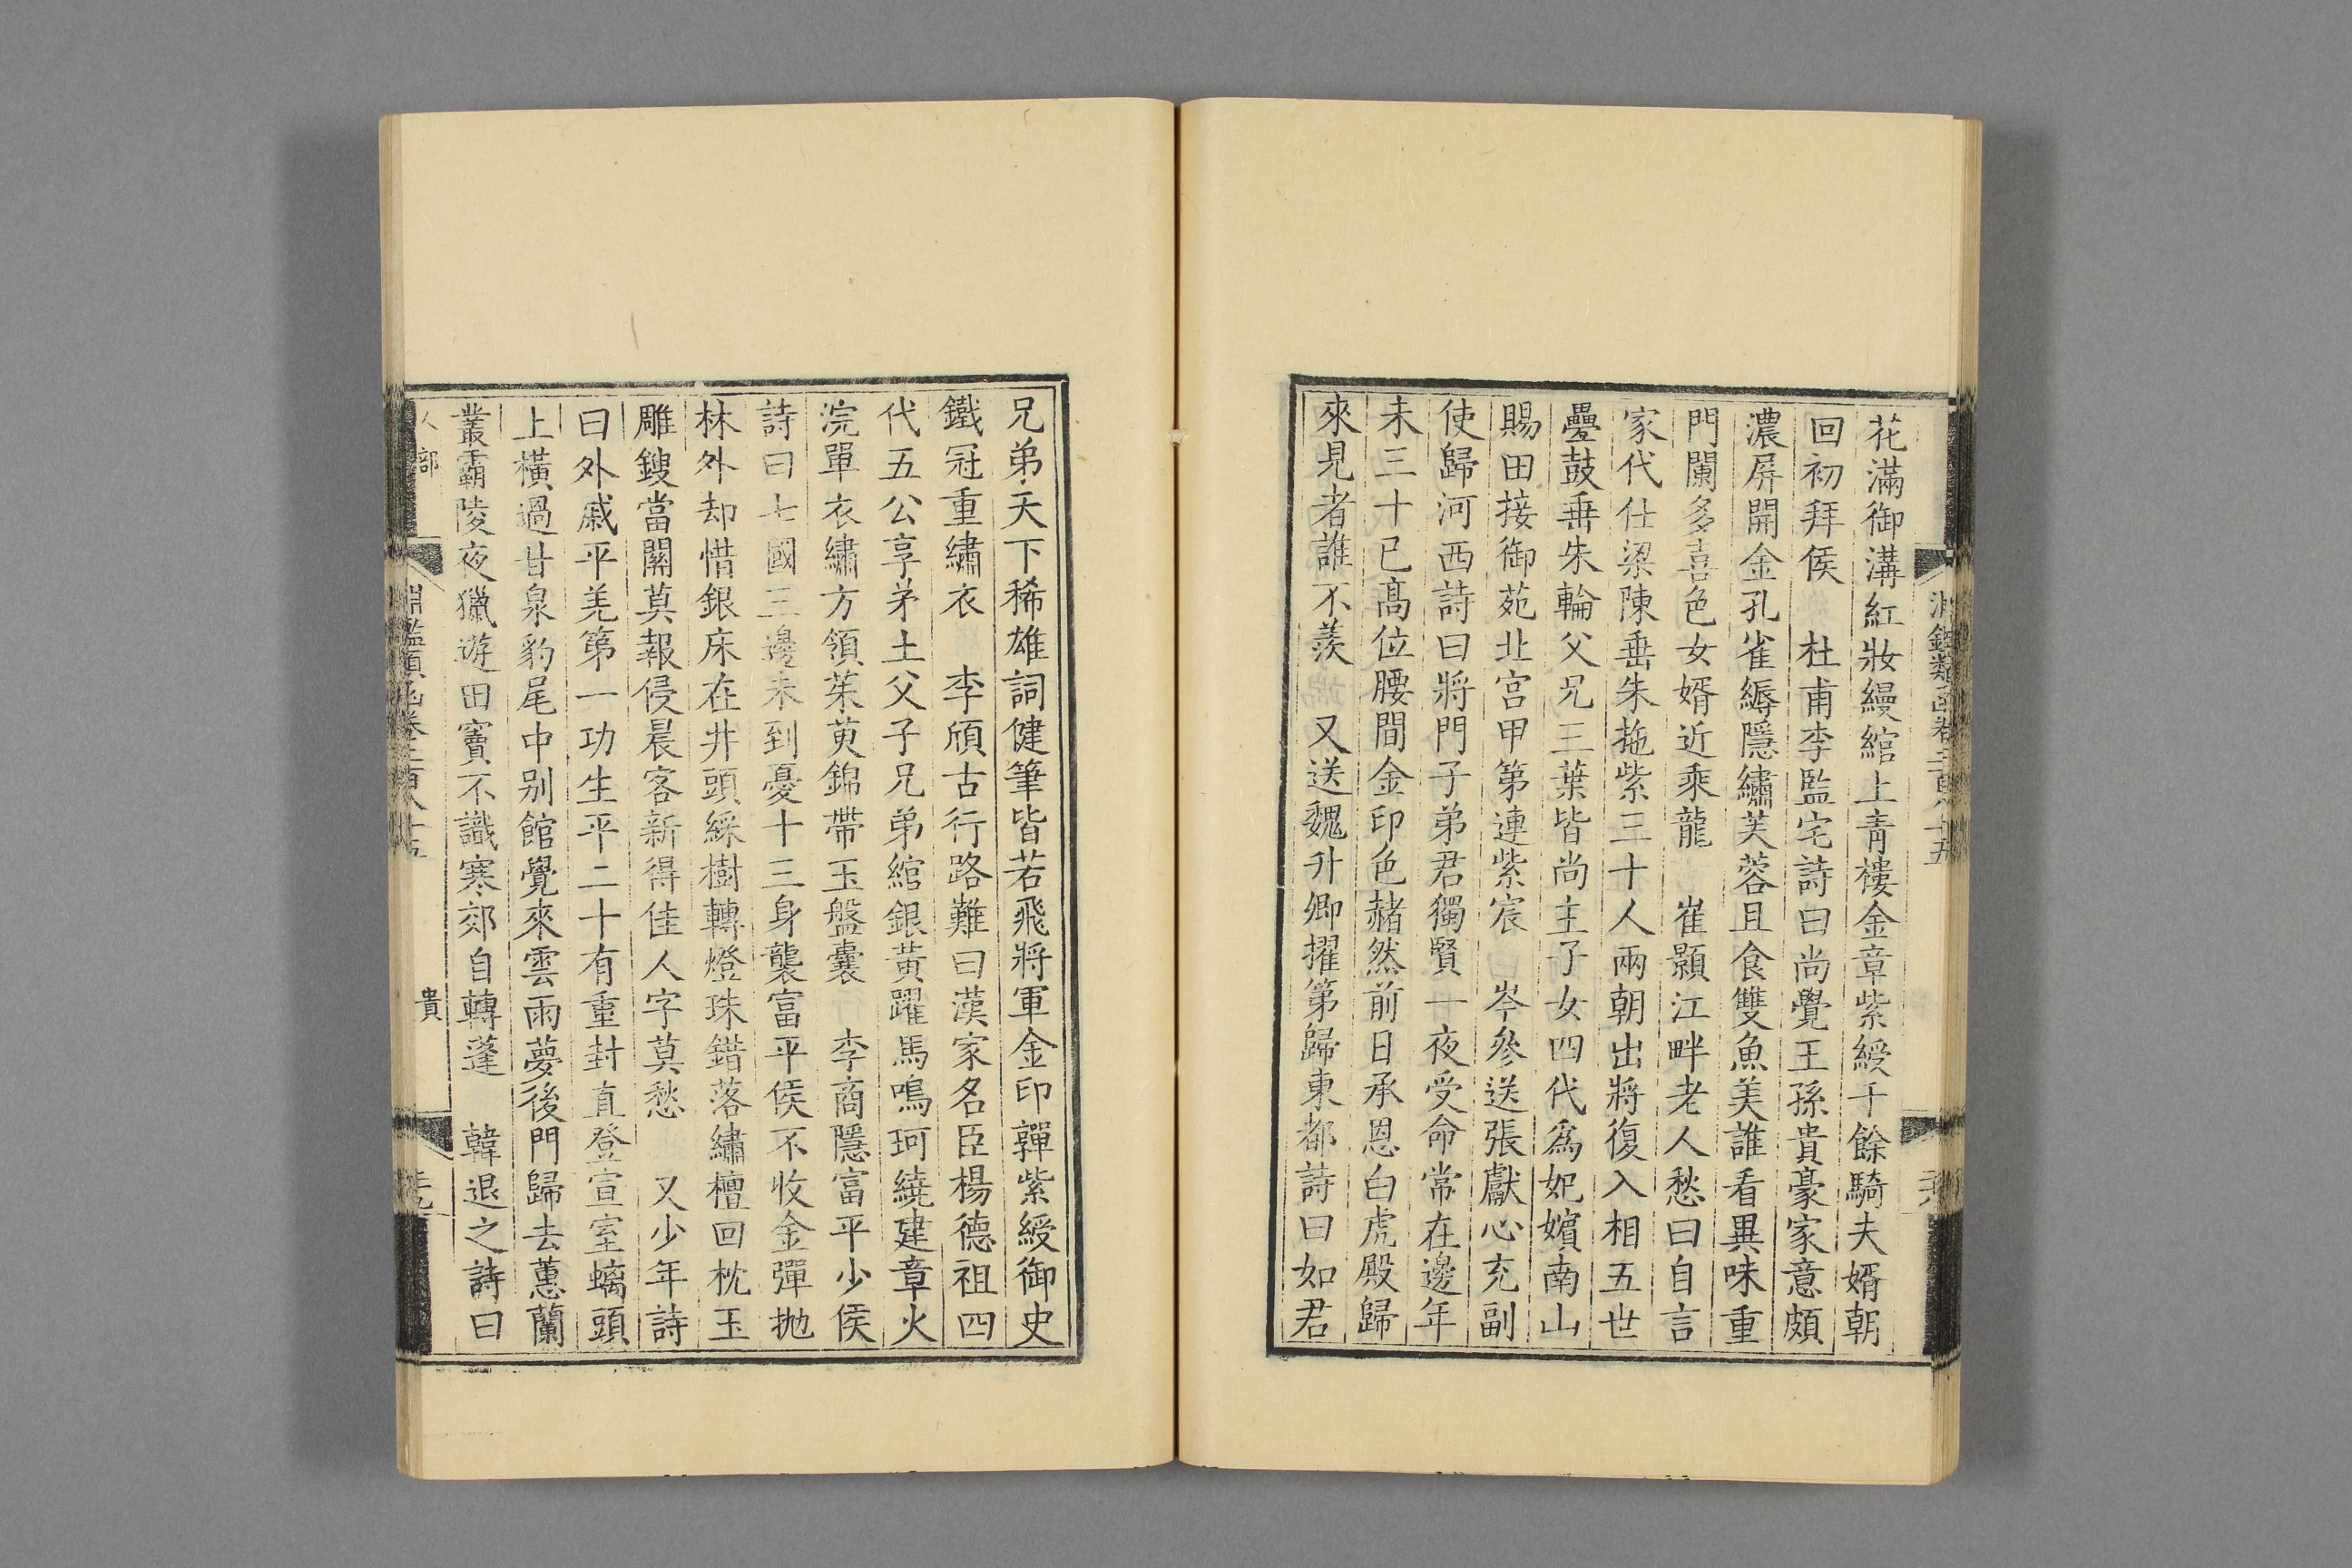 花滿御溝紅妝縵綰上青樓金章紫綬千餘騎夫婿朝
回初拜侯　杜甫李監宅詩曰尚覺王孫貴豪家意頗
濃屏開金孔雀縟隱繡芙蓉且食雙魚美誰看異味重
門闌多喜色女婿近乘龍　崔顥江畔老人愁曰自言
家代仕梁陳垂朱拖紫三十人兩朝出將復入相五世
疊鼓垂朱輪父兄三葉皆尚主子女四代為妃嬪南山
賜田接御苑北宮甲第連紫宸　岑參送張獻心充副
使歸河西詩曰將門子弟君獨賢一夜受命常在邊年
未三十已高位腰間金印色赭然前日承恩白虎殿歸
來見者誰不羨　又送魏升卿擢第歸東都詩曰如君
兄弟天下稀雄詞健筆皆若飛將軍金印嚲紫綬御史
鐵冠重繡衣　李頎古行路難曰漢家名臣楊德祖四
代五公享茅土父子兄弟綰銀黃躍馬鳴珂繞建章火
浣單衣繡方領茱萸錦帶玉盤囊　李商隱富平少侯
詩曰七國三邊未到憂十三身襲富平侯不收金彈拋
林外却惜銀床在井頭綵樹轉燈珠錯落繡檀回枕玉
雕鎪當關莫報侵晨客新得佳人字莫愁　又少年詩
曰外戚平羌第一功生平二十有重封直登宣室螭頭
上橫過甘泉豹尾中別館覺來雲雨夢後門歸去蕙蘭
叢霸陵夜獵遊田竇不識寒郊自轉蓬　韓退之詩曰
人部　淵鑑類函卷三百八十五　貴